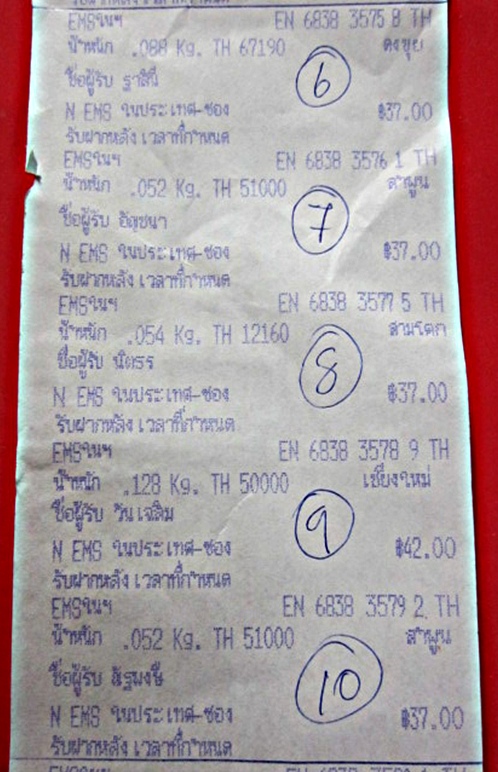 EMSในฯ EN 6838 3575 8 TH
น้ำหนัก .088 Kg. TH 67190 ดงขุย
6
ชื่อผู้รับ ราสินี
N EMS ในประเทศ-ซอง ฿37.00
รับฝากหลังเวลาที่กำหนด
EMSในฯ EN 6838 3576 1 TH
น้ำหนัก .052 Kg. TH 51000 ลำพูน
7
ชื่อผู้รับ อัญชนา
N EMS ในประเทศ-ซอง ฿37.00
รับฝากหลังเวลาที่กำหนด
EMSในฯ EN 6838 3577 5 TH
น้ำหนัก .054 Kg. TH 12160 สามโคก
8
ชื่อผู้รับ
N EMS ในประเทศ-ซอง ฿37.00
รับฝากหลังเวลาที่กำหนด
EMSในฯ EN 6838 3578 9 TH
น้ำหนัก .128 Kg. TH 50000 เชียงใหม่
9
ชื่อผู้รับ วันเฉลิม
N EMS ในประเทศ-ซอง ฿42.00
รับฝากหลังเวลาที่กำหนด
EMSในฯ EN 6838 3579 2 TH
น้ำหนัก .052 Kg. TH 51000 ลำพูน
10
ชื่อผู้รับ
N EMS ในประเทศ-ซอง ฿37.00
รับฝากหลังเวลาที่กำหนด